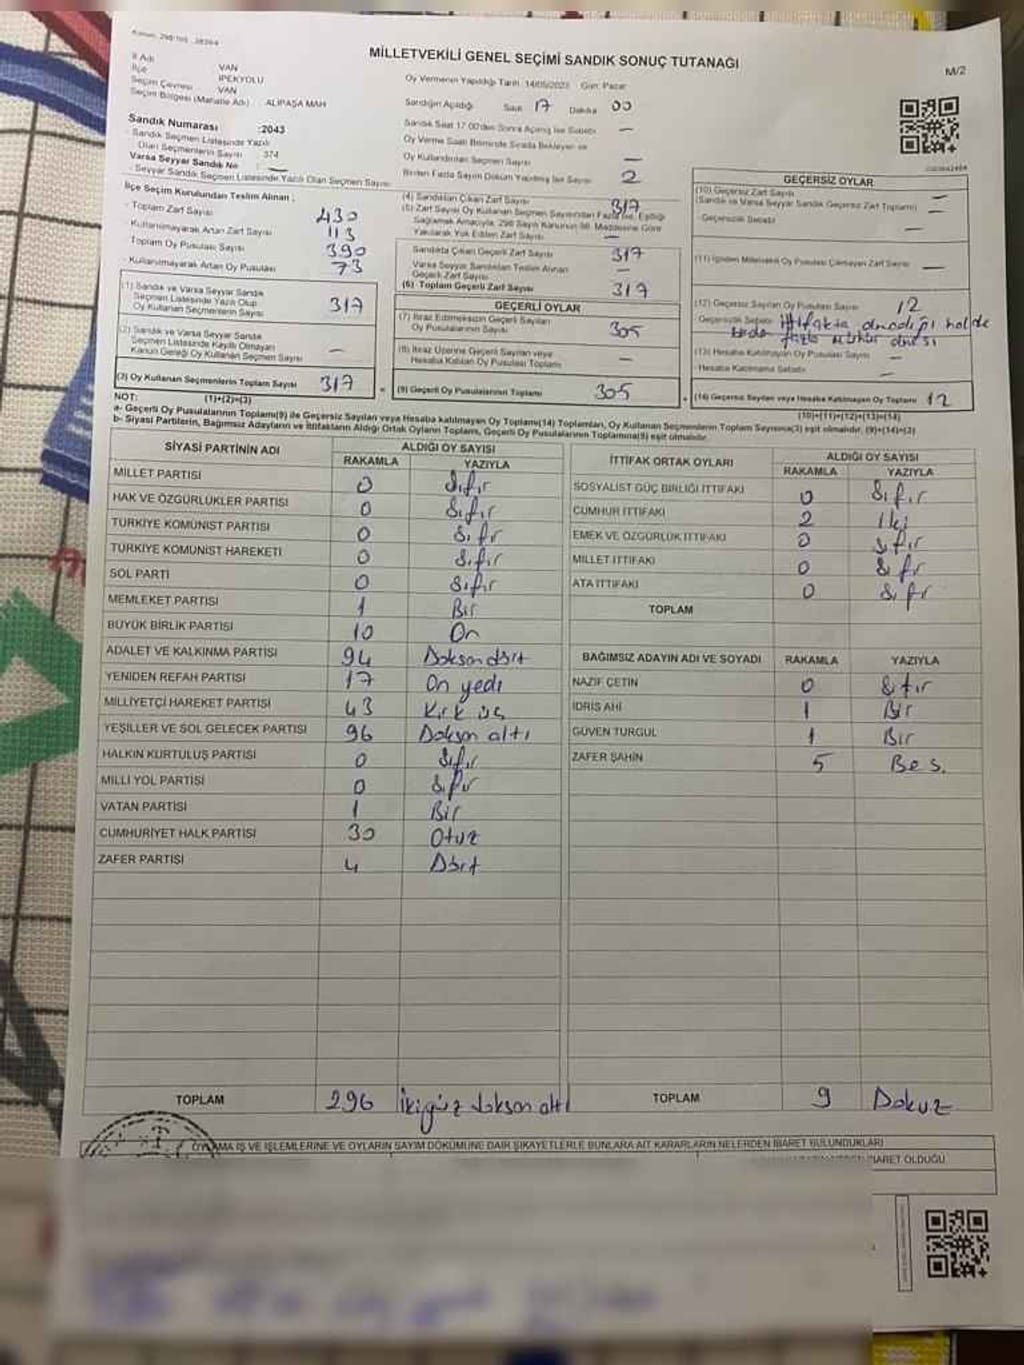 MİLLETVEKİLİ GENEL SEÇİMİ SANDIK SONUÇ TUTANAĞI
M/2
İl Adı VAN
İlçe İPEKYOLU
Seçim Çevresi VAN
Seçim Bölgesi (Mahalle Adı) ALİPAŞA MAH
Sandık Numarası :2043
Sandık Seçmen Listesinde Yazılı
Olan Seçmenlerin Sayısı 374
Varsa Seyyar Sandık No —
Seyyar Sandık Seçmen Listesinde Yazılı Olan Seçmen Sayısı
Oy Vermenin Yapıldığı Tarih 14/05/2023 Gün: Pazar
Sandığın Açıldığı Saat 17 Dakika 00
Sandık Saat 17.00'den Sonra Açılmış İse Sebebi —
Oy Verme Saati Bitiminde Sırada Bekleyen ve
Oy Kullandırılan Seçmen Sayısı —
Birden Fazla Sayım Döküm Yapılmış İse Sayısı 2
İlçe Seçim Kurulundan Teslim Alınan ;
Toplam Zarf Sayısı 430
Kullanılmayarak Artan Zarf Sayısı 113
Toplam Oy Pusulası Sayısı 390
Kullanılmayarak Artan Oy Pusulası 73
(1) Sandık ve Varsa Seyyar Sandık
Seçmen Listesinde Yazılı Olup
Oy Kullanan Seçmenlerin Sayısı 317
(2) Sandık ve Varsa Seyyar Sandık
Seçmen Listesinde Kayıtlı Olmayan
Kanun Gereği Oy Kullanan Seçmen Sayısı —
(3) Oy Kullanan Seçmenlerin Toplam Sayısı 317
(1)+(2)=(3)
(4) Sandıktan Çıkan Zarf Sayısı 317
(5) Zarf Sayısı Oy Kullanan Seçmen Sayısından Fazla İse, Eşitliği
Sağlamak Amacıyla, 298 Sayılı Kanunun 98. Maddesine Göre
Yakılarak Yok Edilen Zarf Sayısı —
Sandıkta Çıkan Geçerli Zarf Sayısı 317
Varsa Seyyar Sandıktan Teslim Alınan
Geçerli Zarf Sayısı —
(6) Toplam Geçerli Zarf Sayısı 317
GEÇERLİ OYLAR
(7) İtiraz Edilmeksizin Geçerli Sayılan
Oy Pusulalarının Sayısı 305
(8) İtiraz Üzerine Geçerli Sayılan veya
Hesaba Katılan Oy Pusulası Toplamı —
= (9) Geçerli Oy Pusulalarının Toplamı 305
GEÇERSİZ OYLAR
(10) Geçersiz Zarf Sayısı —
(Sandık ve Varsa Seyyar Sandık Geçersiz Zarf Toplamı) —
Geçersizlik Sebebi —
(11) İçinden Milletvekili Oy Pusulası Çıkmayan Zarf Sayısı —
(12) Geçersiz Sayılan Oy Pusulası Sayısı 12
Geçersizlik Sebebi ittifakta olmadığı halde
birden fazla mühür olması
(13) Hesaba Katılmayan Oy Pusulası Sayısı —
Hesaba Katılmama Sebebi —
+ (14) Geçersiz Sayılan veya Hesaba Katılmayan Oy Toplamı 12
(10)+(11)+(12)+(13)=(14)
NOT:
a- Geçerli Oy Pusulalarının Toplamı(9) ile Geçersiz Sayılan veya Hesaba katılmayan Oy Toplamı(14) Toplamları, Oy Kullanan Seçmenlerin Toplam Sayısına(3) eşit olmalıdır. (9)+(14)=(3)
b- Siyasi Partilerin, Bağımsız Adayların ve İttifakların Aldığı Ortak Oyların Toplamı, Geçerli Oy Pusulalarının Toplamına(9) eşit olmalıdır.
SİYASİ PARTİNİN ADI ALDIĞI OY SAYISI
RAKAMLA YAZIYLA
MİLLET PARTİSİ 0 Sıfır
HAK VE ÖZGÜRLÜKLER PARTİSİ 0 Sıfır
TÜRKİYE KOMÜNİST PARTİSİ 0 Sıfır
TÜRKİYE KOMÜNİST HAREKETİ 0 Sıfır
SOL PARTİ 0 Sıfır
MEMLEKET PARTİSİ 1 Bir
BÜYÜK BİRLİK PARTİSİ 10 On
ADALET VE KALKINMA PARTİSİ 94 Doksan dört
YENİDEN REFAH PARTİSİ 17 On yedi
MİLLİYETÇİ HAREKET PARTİSİ 43 Kırk üç
YEŞİLLER VE SOL GELECEK PARTİSİ 96 Doksan altı
HALKIN KURTULUŞ PARTİSİ 0 Sıfır
MİLLİ YOL PARTİSİ 0 Sıfır
VATAN PARTİSİ 1 Bir
CUMHURİYET HALK PARTİSİ 30 Otuz
ZAFER PARTİSİ 4 Dört
TOPLAM 296 İkiyüz doksan altı
İTTİFAK ORTAK OYLARI ALDIĞI OY SAYISI
RAKAMLA YAZIYLA
SOSYALİST GÜÇ BİRLİĞİ İTTİFAKI 0 Sıfır
CUMHUR İTTİFAKI 2 İki
EMEK VE ÖZGÜRLÜK İTTİFAKI 0 Sıfır
MİLLET İTTİFAKI 0 Sıfır
ATA İTTİFAKI 0 Sıfır
TOPLAM
BAĞIMSIZ ADAYIN ADI VE SOYADI RAKAMLA YAZIYLA
NAZİF ÇETİN 0 Sıfır
İDRİS AHİ 1 Bir
GÜVEN TURGUL 1 Bir
ZAFER ŞAHİN 5 Beş.
TOPLAM 9 Dokuz
OYLAMA İŞ VE İŞLEMLERİNE VE OYLARIN SAYIM DÖKÜMÜNE DAİR ŞİKAYETLERLE BUNLARA AİT KARARLARIN NELERDEN İBARET BULUNDUKLARI
İBARET OLDUĞU